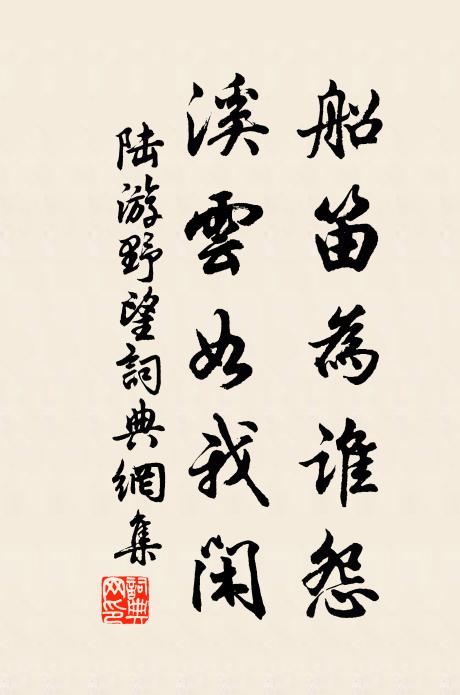 船笛為誰怨
溪雲如我閑
陆游野望詞典網集
詞典网印